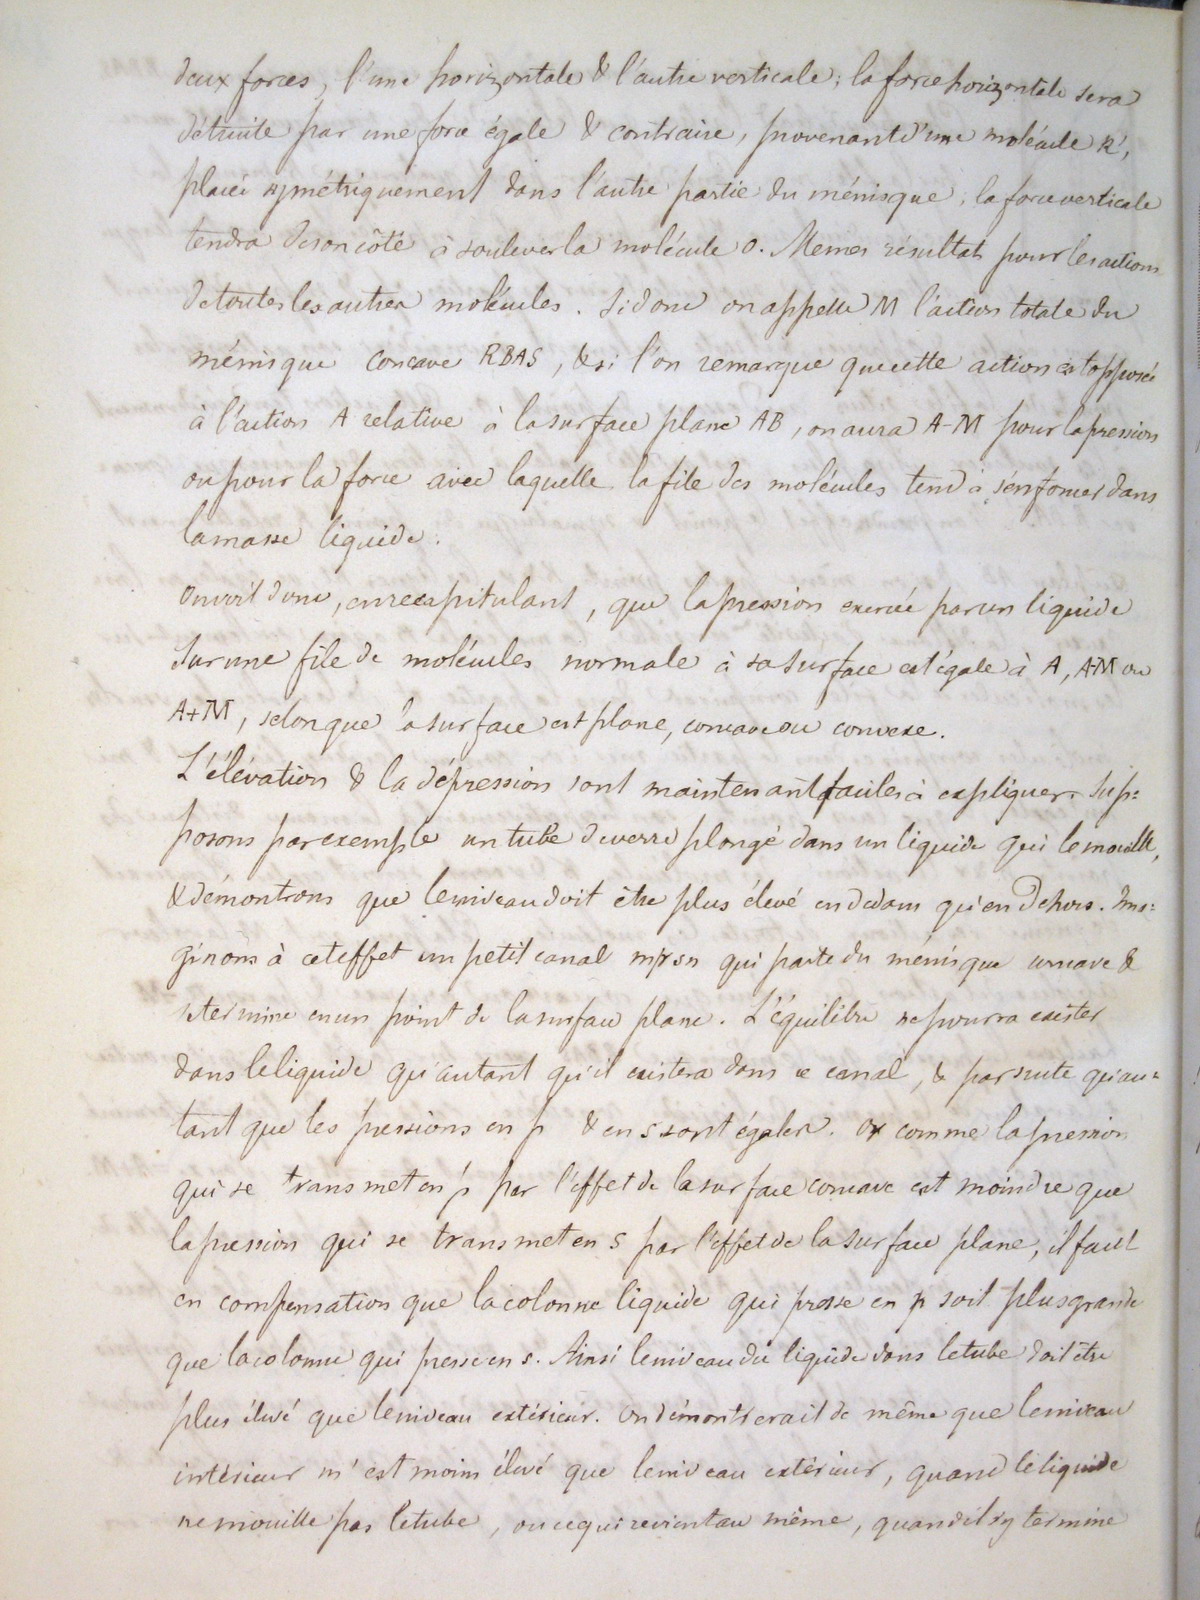 deux forces, l'une horizontale & l'autre verticale; la force horizontale sera
détruite par une force égale & contraire, provenant d'une molécule R',
placée symétriquement dans l'autre partie du ménisque; la force verticale
tendra de son côté à soulever la molécule O. Memes résultats pour les actions
de toutes les autres molécules. Si donc on appelle M l'action totale du
ménisque concave RBAS, & si l'on remarque que cette action est opposée
à l'action A relative à la surface plane AB, on aura A-M pour la pression
ou pour la force avec laquelle la file des molécules tend à s'enfoncer dans
la masse liquide.
On voit donc, en recapitulant, que la pression exercée par un liquide
sur une file de molécules normale à sa surface est égale à A, A-M ou
A+M, selon que la surface est plane, concave ou convexe.
L'élévation & la dépression sont maintenant faciles à expliquer. Sup=
posons par exemple un tube de verre plongé dans un liquide qui le mouille,
& démontrons que le niveau doit être plus élevé en dedans qu'en dehors. Ima=
ginons à cet effet un petit canal mpsn qui parte du ménisque concave &
se termine en un point de la surface plane. L'équilibre ne pourra exister
dans le liquide qu'autant qu'il existera dans ce canal, & par suite qu'au=
tant que les pressions en p & en s sont égales. Or comme la pression
qui se transmet en p par l'effet de la surface concave est moindre que
la pression qui se transmet en s par l'effet de la surface plane, il faut
en compensation que la colonne liquide qui presse en p soit plus grande
que la colonne qui presse en s. Ainsi le niveau du liquide dans le tube doit être
plus élevé que le niveau extérieur. On démontrerait de même que le niveau
intérieur n'est moins élevé que le niveau extérieur, quand le liquide
ne mouille pas le tube, ou ce qui revient au même, quand il s'y termine